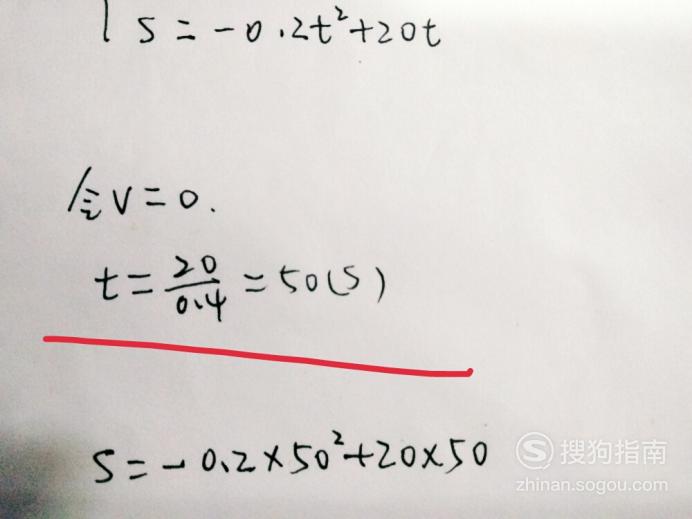 s=-0.2t²+20t
令v=0.
t=20/0.4=50(s)
s=-0.2×50²+20×50
搜狗指南
zhinan.sogou.com